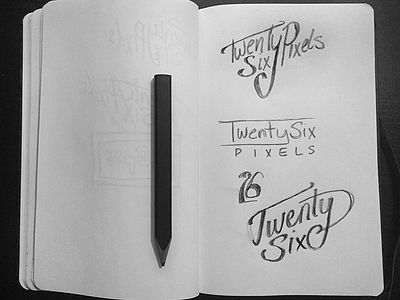 Twenty Pixels
Six
TwentySix
PIXELS
26
Twenty
Six